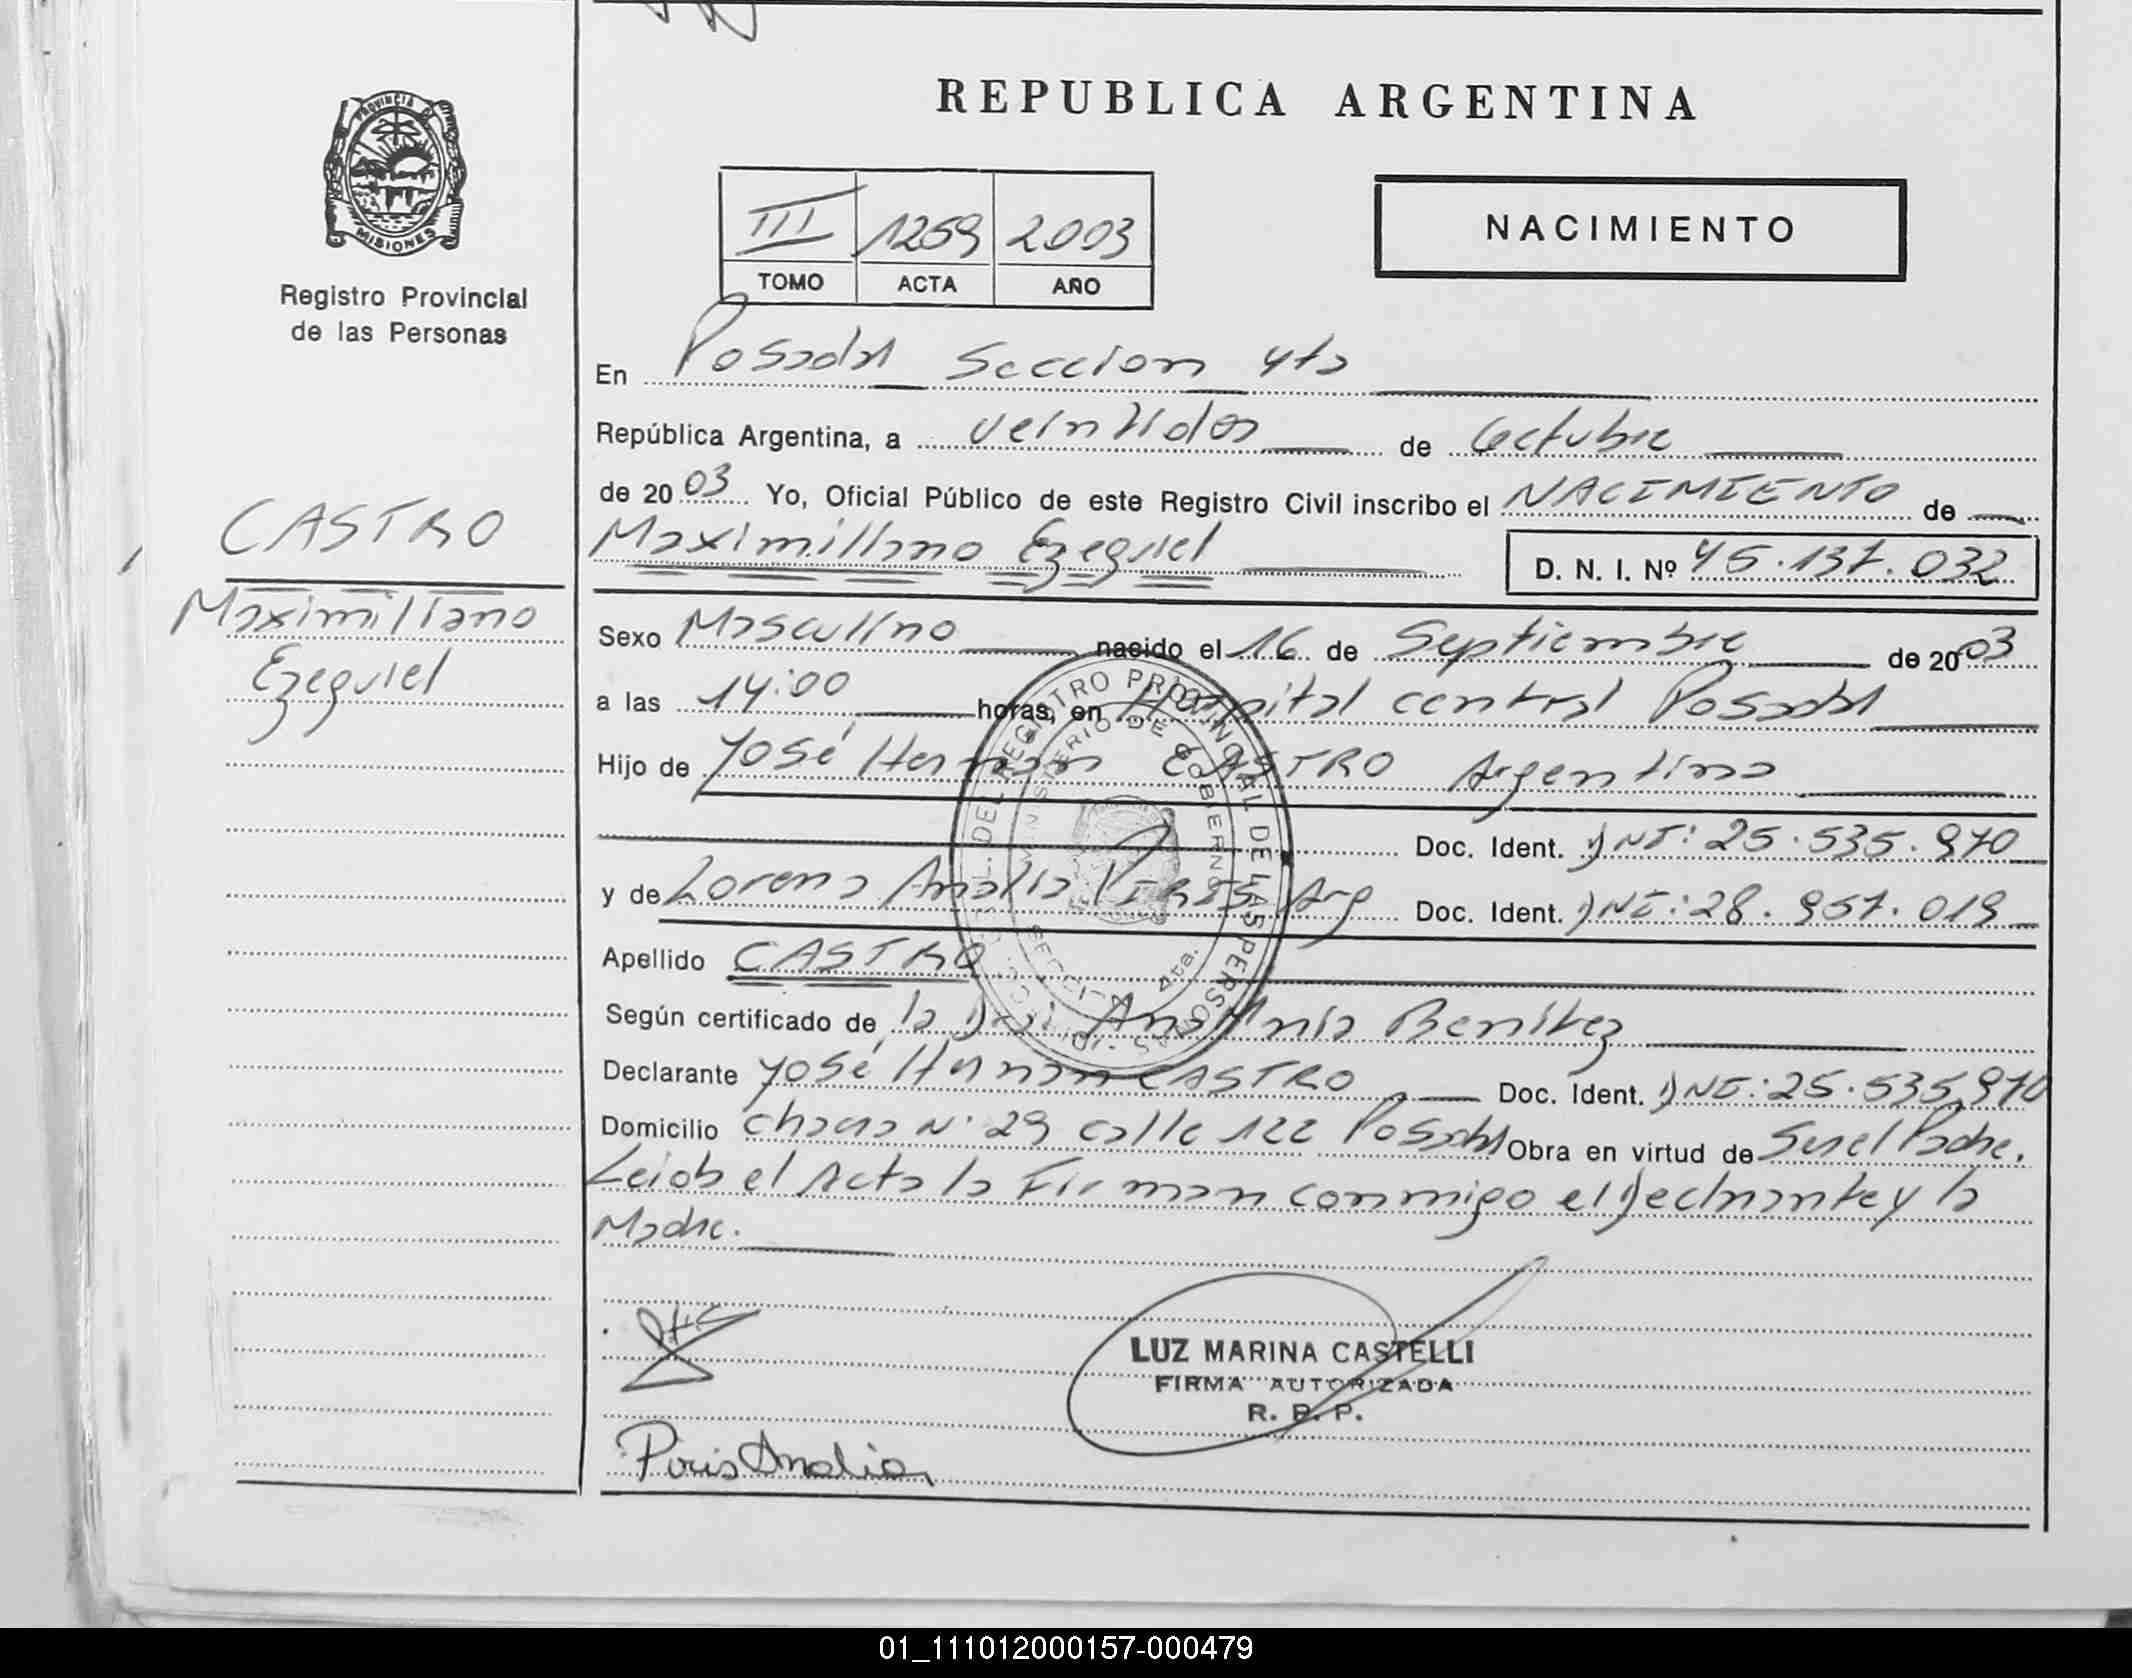 PROVINCIA
MISIONES
Registro Provincial
de las Personas
CASTRO
Maximiliano
Ezequiel
REPUBLICA ARGENTINA
III 1259 2003
TOMO ACTA AÑO
NACIMIENTO
En Posadas Seccion 4ta
República Argentina, a veintidos de Octubre
de 2003 Yo, Oficial Público de este Registro Civil inscribo el NACIMIENTO de
Maximiliano Ezequiel D. N. I. Nº 45.137.032
Sexo Masculino nacido el 16 de Septiembre de 2003
a las 14:00 horas, en Hospital central Posadas
Hijo de José Hernan CASTRO Argentino
Doc. Ident. DNI: 25.535.970
y de Lorena Analia Arg Doc. Ident. DNI: 28.957.019
Apellido CASTRO
Según certificado de la Dra. Ana Benitez
Declarante José Hernan CASTRO Doc. Ident. DNI: 25.535.970
Domicilio chacra Nº 29 calle 122 Posadas Obra en virtud de Ser el Padre.
Leida el Acta la Firman conmigo el Declarante y la
Madre.
REGISTRO PROVINCIAL DE LAS PERSONAS
MINISTERIO DE GOBIERNO
SECCION 4ta.
LUZ MARINA CASTELLI
FIRMA AUTORIZADA
R. P. P.
Analia
01_111012000157-000479